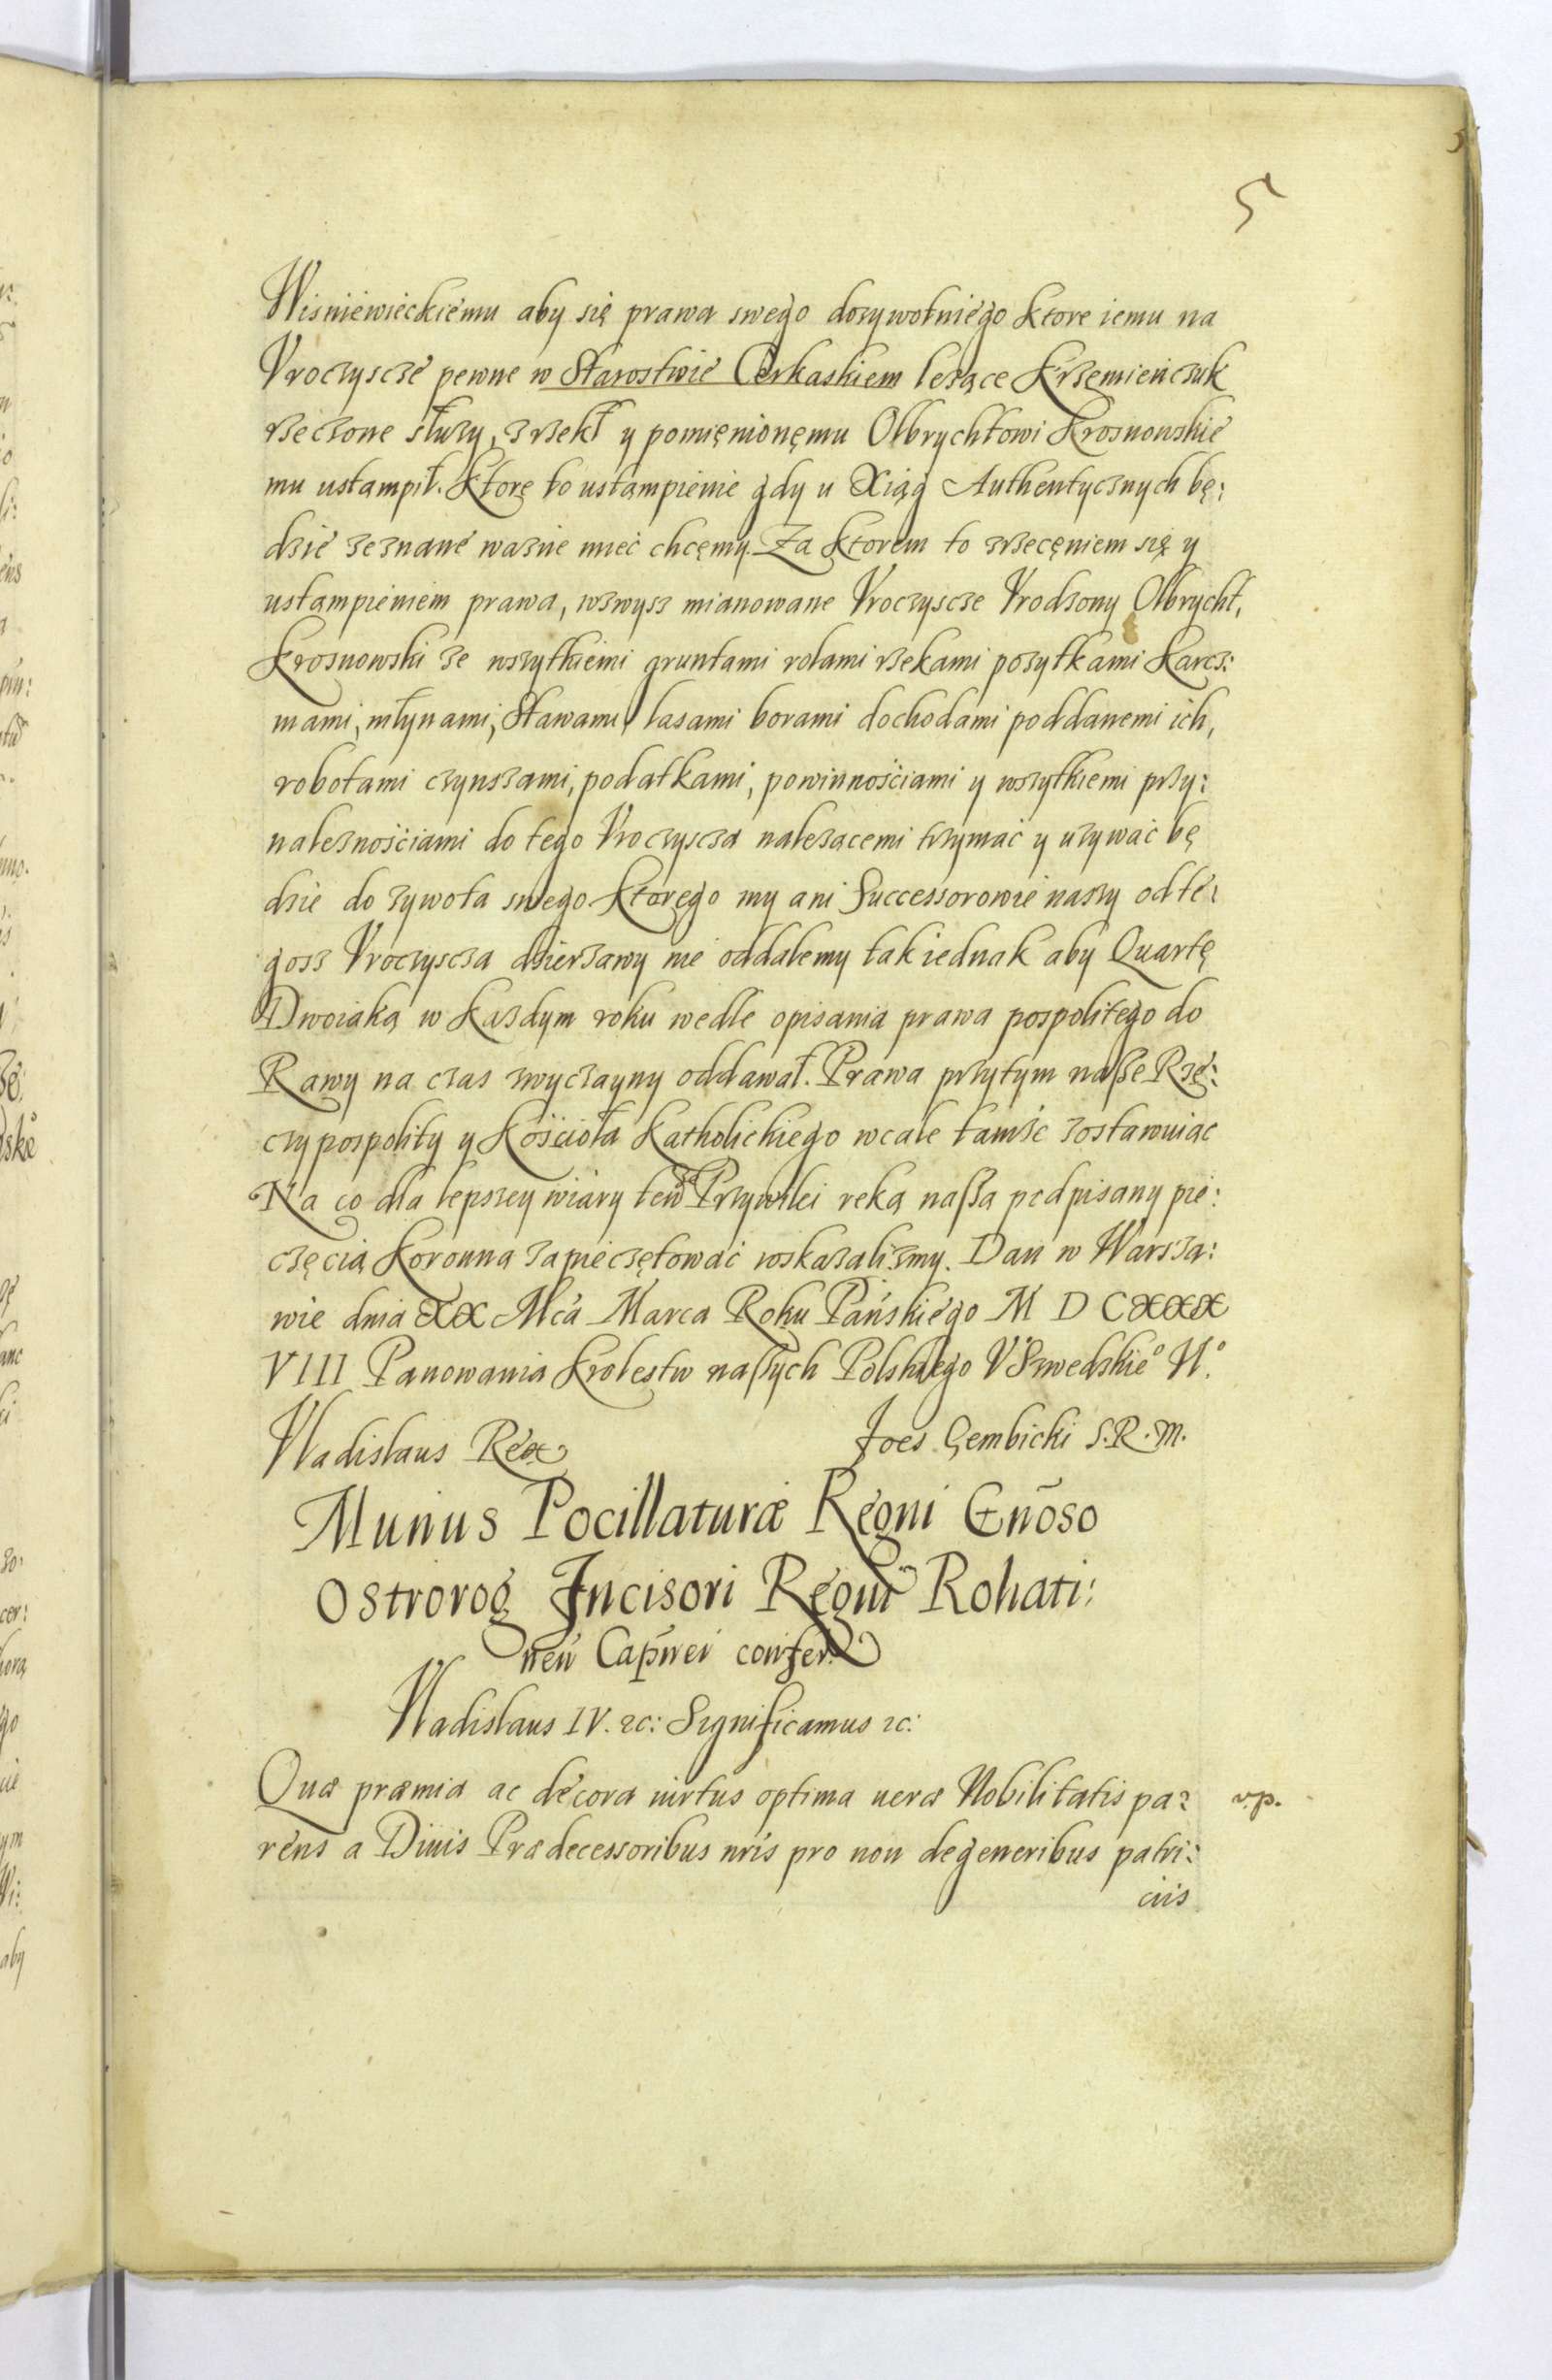 5
Wisniewieckiemu aby się prawa swego dozywotniego ktore iemu na
Vroczyscze pewne w Starostwie Cerkaskiem lezące Krzemienczuk
rzeczone słuzy, zrzekł y pomięnionęmu Olbrychtowi Krosnowskie
mu ustampił. Ktorę to ustampienie gdy u Xiąg Authentycznych bę:
dzie zeznane wazne mieć chcęmy. Za ktorem to zrzecęniem się y
ustampieniem prawa, wzwysz mianowane Vroczyscze Vrodzony Olbrycht,
Krosnowski ze wszytkiemi gruntami rolami rzekami pozytkami Karcz:
mami, młynami, Stawami, lasami borami dochodami poddanemi ich,
robotami czynszami, podatkami, powinnościami y wszytkiemi przy:
naleznościami do tego Vroczyscza nalezacemi trzymać y uzywać bę
dzie do zywota swego. Ktorego my ani Successorowie naszy od te:
gosz Vroczyscza dzierzawy nie oddalemy tak iednak aby Quartę
Dwoiaką w kazdym roku wedle opisania prawa pospolitego do
Rawy na czas zwyczayny oddawał. Prawa przytym nasze Rzę:
czypospolity y Kościoła Katholickiego wcale tamze zostawuiąc
Na co dla lepszey wiary ten Przywilei reką naszą podpisany pie:
częcią Koronna zapieczętować roskazalismy. Dan w Warsza:
wie dnia XX Mca Marca Roku Pańskiego M D C XXX
VIII Panowania Krolestw naszych Polskiego V Szwedskie° V°.
Vladislaus Rex Joes Gembicki S.R.M.
Munus Pocillaturæ Regni Gnōso
Ostrorog Incisori Regni Rohati:
neń Capnei confer:
Vladislaus IV. &c: Significamus &c:
Quæ præmia ac decora uirtus optima ueræ Nobilitatis pa: v.p.
rens a Diuis Prædecessoribus nris pro non degeneribus patri:
ciis